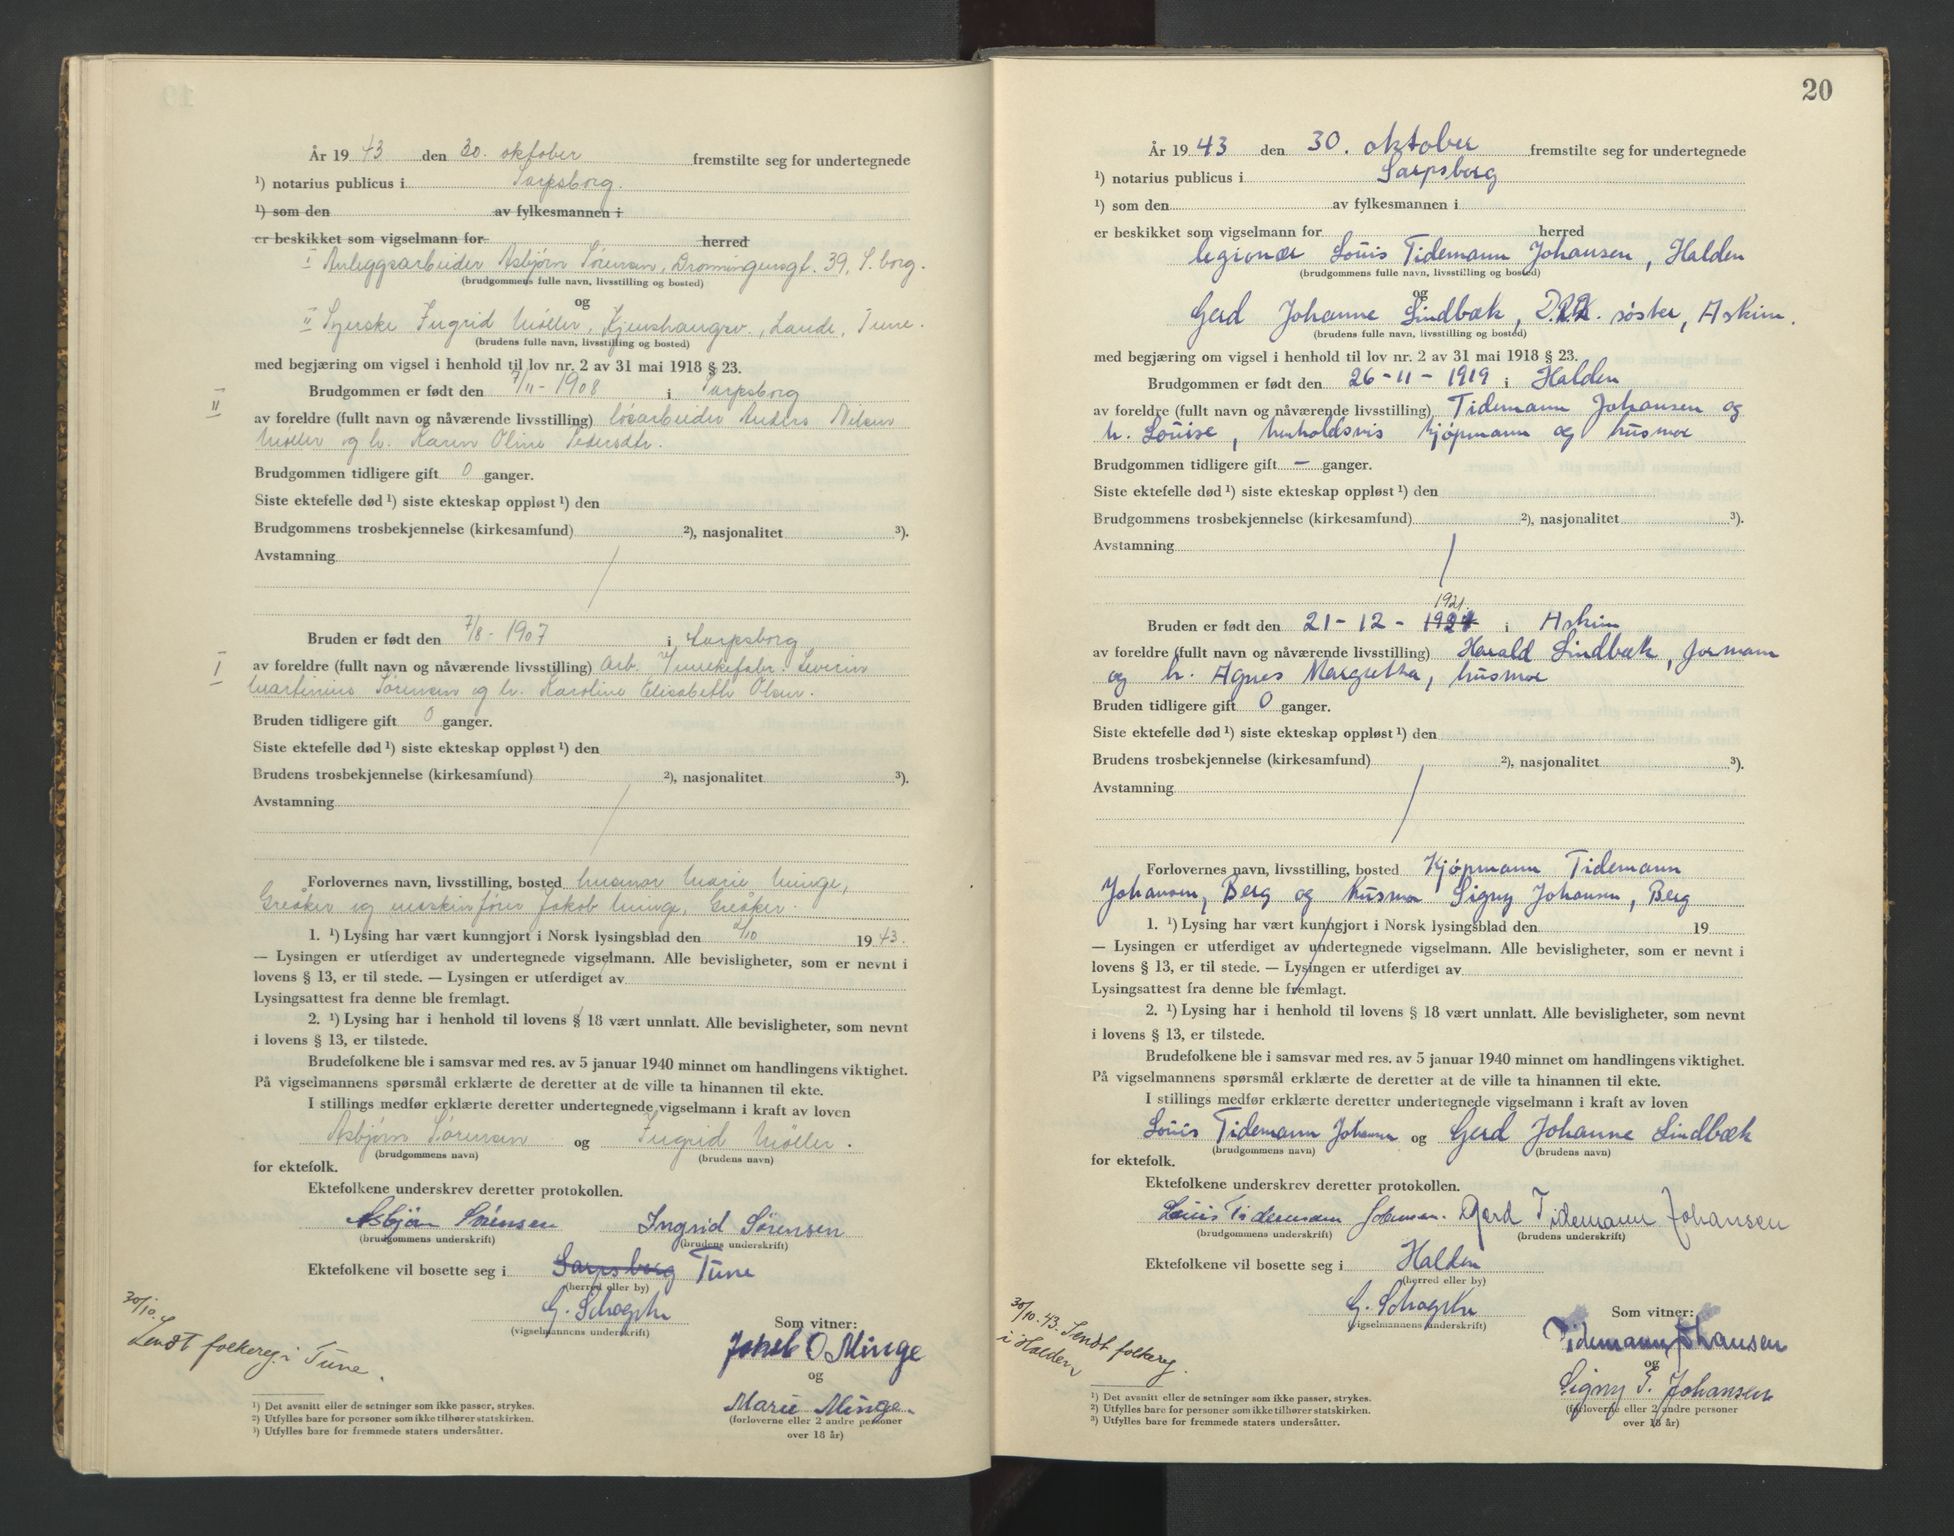 År 1943 den 30. oktober fremstilte seg for undertegnede
¹) notarius publicus i Sarpsborg.
¹) som den av fylkesmannen i
er beskikket som vigselmann for herred
I Anleggsarbeider Asbjørn Sørensen, Dronningensgt. 39, S.borg.
(brudgommens fulle navn, livsstilling og bosted)
og
II Syerske Ingrid Møller, Lande, Tune.
(brudens fulle navn, livsstilling og bosted)
med begjæring om vigsel i henhold til lov nr. 2 av 31 mai 1918 § 23.
I
Brudgommen er født den 7/11-1908 i Sarpsborg
II
av foreldre (fullt navn og nåværende livsstilling) løsarbeider Anders Nilsen
Møller og h. Karen Oline Pedersdtr.
Brudgommen tidligere gift 0 ganger.
Siste ektefelle død ¹) siste ekteskap oppløst ¹) den
Brudgommens trosbekjennelse (kirkesamfund) ²), nasjonalitet ³).
Avstamning
Bruden er født den 7/8-1907 i Sarpsborg
I av foreldre (fullt navn og nåværende livsstilling) arb. Severin
Martinius Sørensen og h. Karoline Elisabeth Olsen.
Bruden tidligere gift 0 ganger.
Siste ektefelle død ¹) siste ekteskap oppløst ¹) den
Brudens trosbekjennelse (kirkesamfund) ²), nasjonalitet ³).
Avstamning
Forlovernes navn, livsstilling, bosted husmor Marie Minge,
Greåker og maskinfører Jakob Minge, Greåker.
1. ¹) Lysing har vært kunngjort i Norsk lysingsblad den /10 1943.
— Lysingen er utferdiget av undertegnede vigselmann. Alle bevisligheter, som er nevnt i
lovens § 13, er til stede. — Lysingen er utferdiget av
Lysingsattest fra denne ble fremlagt.
2. ¹) Lysing har i henhold til lovens § 18 vært unnlatt. Alle bevisligheter, som nevnt
i lovens § 13, er tilstede.
Brudefolkene ble i samsvar med res. av 5 januar 1940 minnet om handlingens viktighet.
På vigselmannens spørsmål erklærte de deretter at de ville ta hinannen til ekte.
I stillings medfør erklærte deretter undertegnede vigselmann i kraft av loven
Asbjørn Sørensen og Ingrid Møller.
(brudgommens navn) (brudens navn)
for ektefolk.
Ektefolkene underskrev deretter protokollen.
Asbjørn Sørensen Ingrid Sørensen
(brudgommens underskrift) (brudens underskrift)
Ektefolkene vil bosette seg i Sarpsborg Tune
(herred eller by)
(vigselmannens underskrift)
30/10.
Sendt folkereg. i Tune.
Som vitner:
Jakob O Minge
og
Marie Minge.
(forloverne eller 2 andre personer
over 18 år)
¹) Det avsnitt eller de setninger som ikke passer, strykes.
²) Utfylles bare for personer som ikke tilhører statskirken.
³) Utfylles bare for fremmede staters undersåtter.
20
År 1943 den 30. oktober fremstilte seg for undertegnede
¹) notarius publicus i Sarpsborg
¹) som den av fylkesmannen i
er beskikket som vigselmann for herred
legionær Louis Tidemann Johansen, Halden
(brudgommens fulle navn, livsstilling og bosted)
og
Gerd Johanne Lindbæk, søster, Askim.
(brudens fulle navn, livsstilling og bosted)
med begjæring om vigsel i henhold til lov nr. 2 av 31 mai 1918 § 23.
Brudgommen er født den 26-11-1919 i Halden
av foreldre (fullt navn og nåværende livsstilling) Tidemann Johansen og
h. Louise, henholdsvis kjøpmann og husmor
Brudgommen tidligere gift - ganger.
Siste ektefelle død ¹) siste ekteskap oppløst ¹) den
Brudgommens trosbekjennelse (kirkesamfund) ²), nasjonalitet ³).
Avstamning
1921.
Bruden er født den 21-12-1924 i Askim
av foreldre (fullt navn og nåværende livsstilling) Harald Lindbæk, formann
og h. Agnes Margrethe, husmor
Bruden tidligere gift 0 ganger.
Siste ektefelle død ¹) siste ekteskap oppløst ¹) den
Brudens trosbekjennelse (kirkesamfund) ²), nasjonalitet ³).
Avstamning
Forlovernes navn, livsstilling, bosted Kjøpmann Tidemann
Johansen, Berg og husmor Signy Johansen, Berg
1. ¹) Lysing har vært kunngjort i Norsk lysingsblad den 19
— Lysingen er utferdiget av undertegnede vigselmann. Alle bevisligheter, som er nevnt i
lovens § 13, er til stede. — Lysingen er utferdiget av
Lysingsattest fra denne ble fremlagt.
2. ¹) Lysing har i henhold til lovens § 18 vært unnlatt. Alle bevisligheter, som nevnt
i lovens § 13, er tilstede.
Brudefolkene ble i samsvar med res. av 5 januar 1940 minnet om handlingens viktighet.
På vigselmannens spørsmål erklærte de deretter at de ville ta hinannen til ekte.
I stillings medfør erklærte deretter undertegnede vigselmann i kraft av loven
Louis Tidemann Johansen og Gerd Johanne Lindbæk
(brudgommens navn) (brudens navn)
for ektefolk.
Ektefolkene underskrev deretter protokollen.
Louis Tidemann Johansen. Gerd Tidemann Johansen
(brudgommens underskrift) (brudens underskrift)
Ektefolkene vil bosette seg i Halden
(herred eller by)
(vigselmannens underskrift)
30/10.43. Sendt folkereg.
i Halden
Som vitner:
Tidemann Johansen
og
Signy T. Johansen
(forloverne eller 2 andre personer
over 18 år)
¹) Det avsnitt eller de setninger som ikke passer, strykes.
²) Utfylles bare for personer som ikke tilhører statskirken.
³) Utfylles bare for fremmede staters undersåtter.